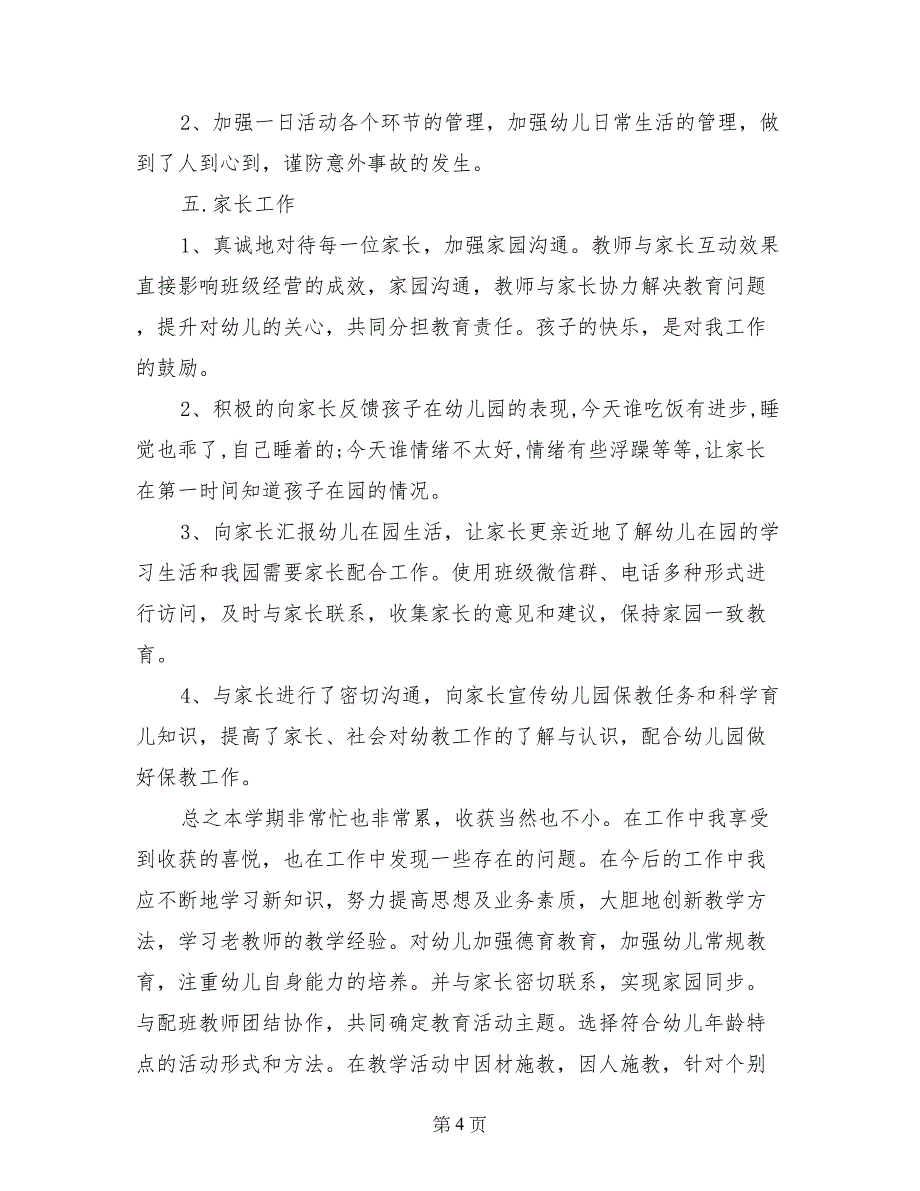 2、加强一日活动各个环节的管理，加强幼儿日常生活的管理，做
到了人到心到，谨防意外事故的发生。
五.家长工作
1、真诚地对待每一位家长，加强家园沟通。教师与家长互动效果
直接影响班级经营的成效，家园沟通，教师与家长协力解决教育问题
，提升对幼儿的关心，共同分担教育责任。孩子的快乐，是对我工作
的鼓励。
2、积极的向家长反馈孩子在幼儿园的表现,今天谁吃饭有进步,睡
觉也乖了,自己睡着的;今天谁情绪不太好,情绪有些浮躁等等,让家长
在第一时间知道孩子在园的情况。
3、向家长汇报幼儿在园生活，让家长更亲近地了解幼儿在园的学
习生活和我园需要家长配合工作。使用班级微信群、电话多种形式进
行访问，及时与家长联系，收集家长的意见和建议，保持家园一致教
育。
4、与家长进行了密切沟通，向家长宣传幼儿园保教任务和科学育
儿知识，提高了家长、社会对幼教工作的了解与认识，配合幼儿园做
好保教工作。
总之本学期非常忙也非常累，收获当然也不小。在工作中我享受
到收获的喜悦，也在工作中发现一些存在的问题。在今后的工作中我
应不断地学习新知识，努力提高思想及业务素质，大胆地创新教学方
法，学习老教师的教学经验。对幼儿加强德育教育，加强幼儿常规教
育，注重幼儿自身能力的培养。并与家长密切联系，实现家园同步。
与配班教师团结协作，共同确定教育活动主题。选择符合幼儿年龄特
点的活动形式和方法。在教学活动中因材施教，因人施教，针对个别
第 4 页